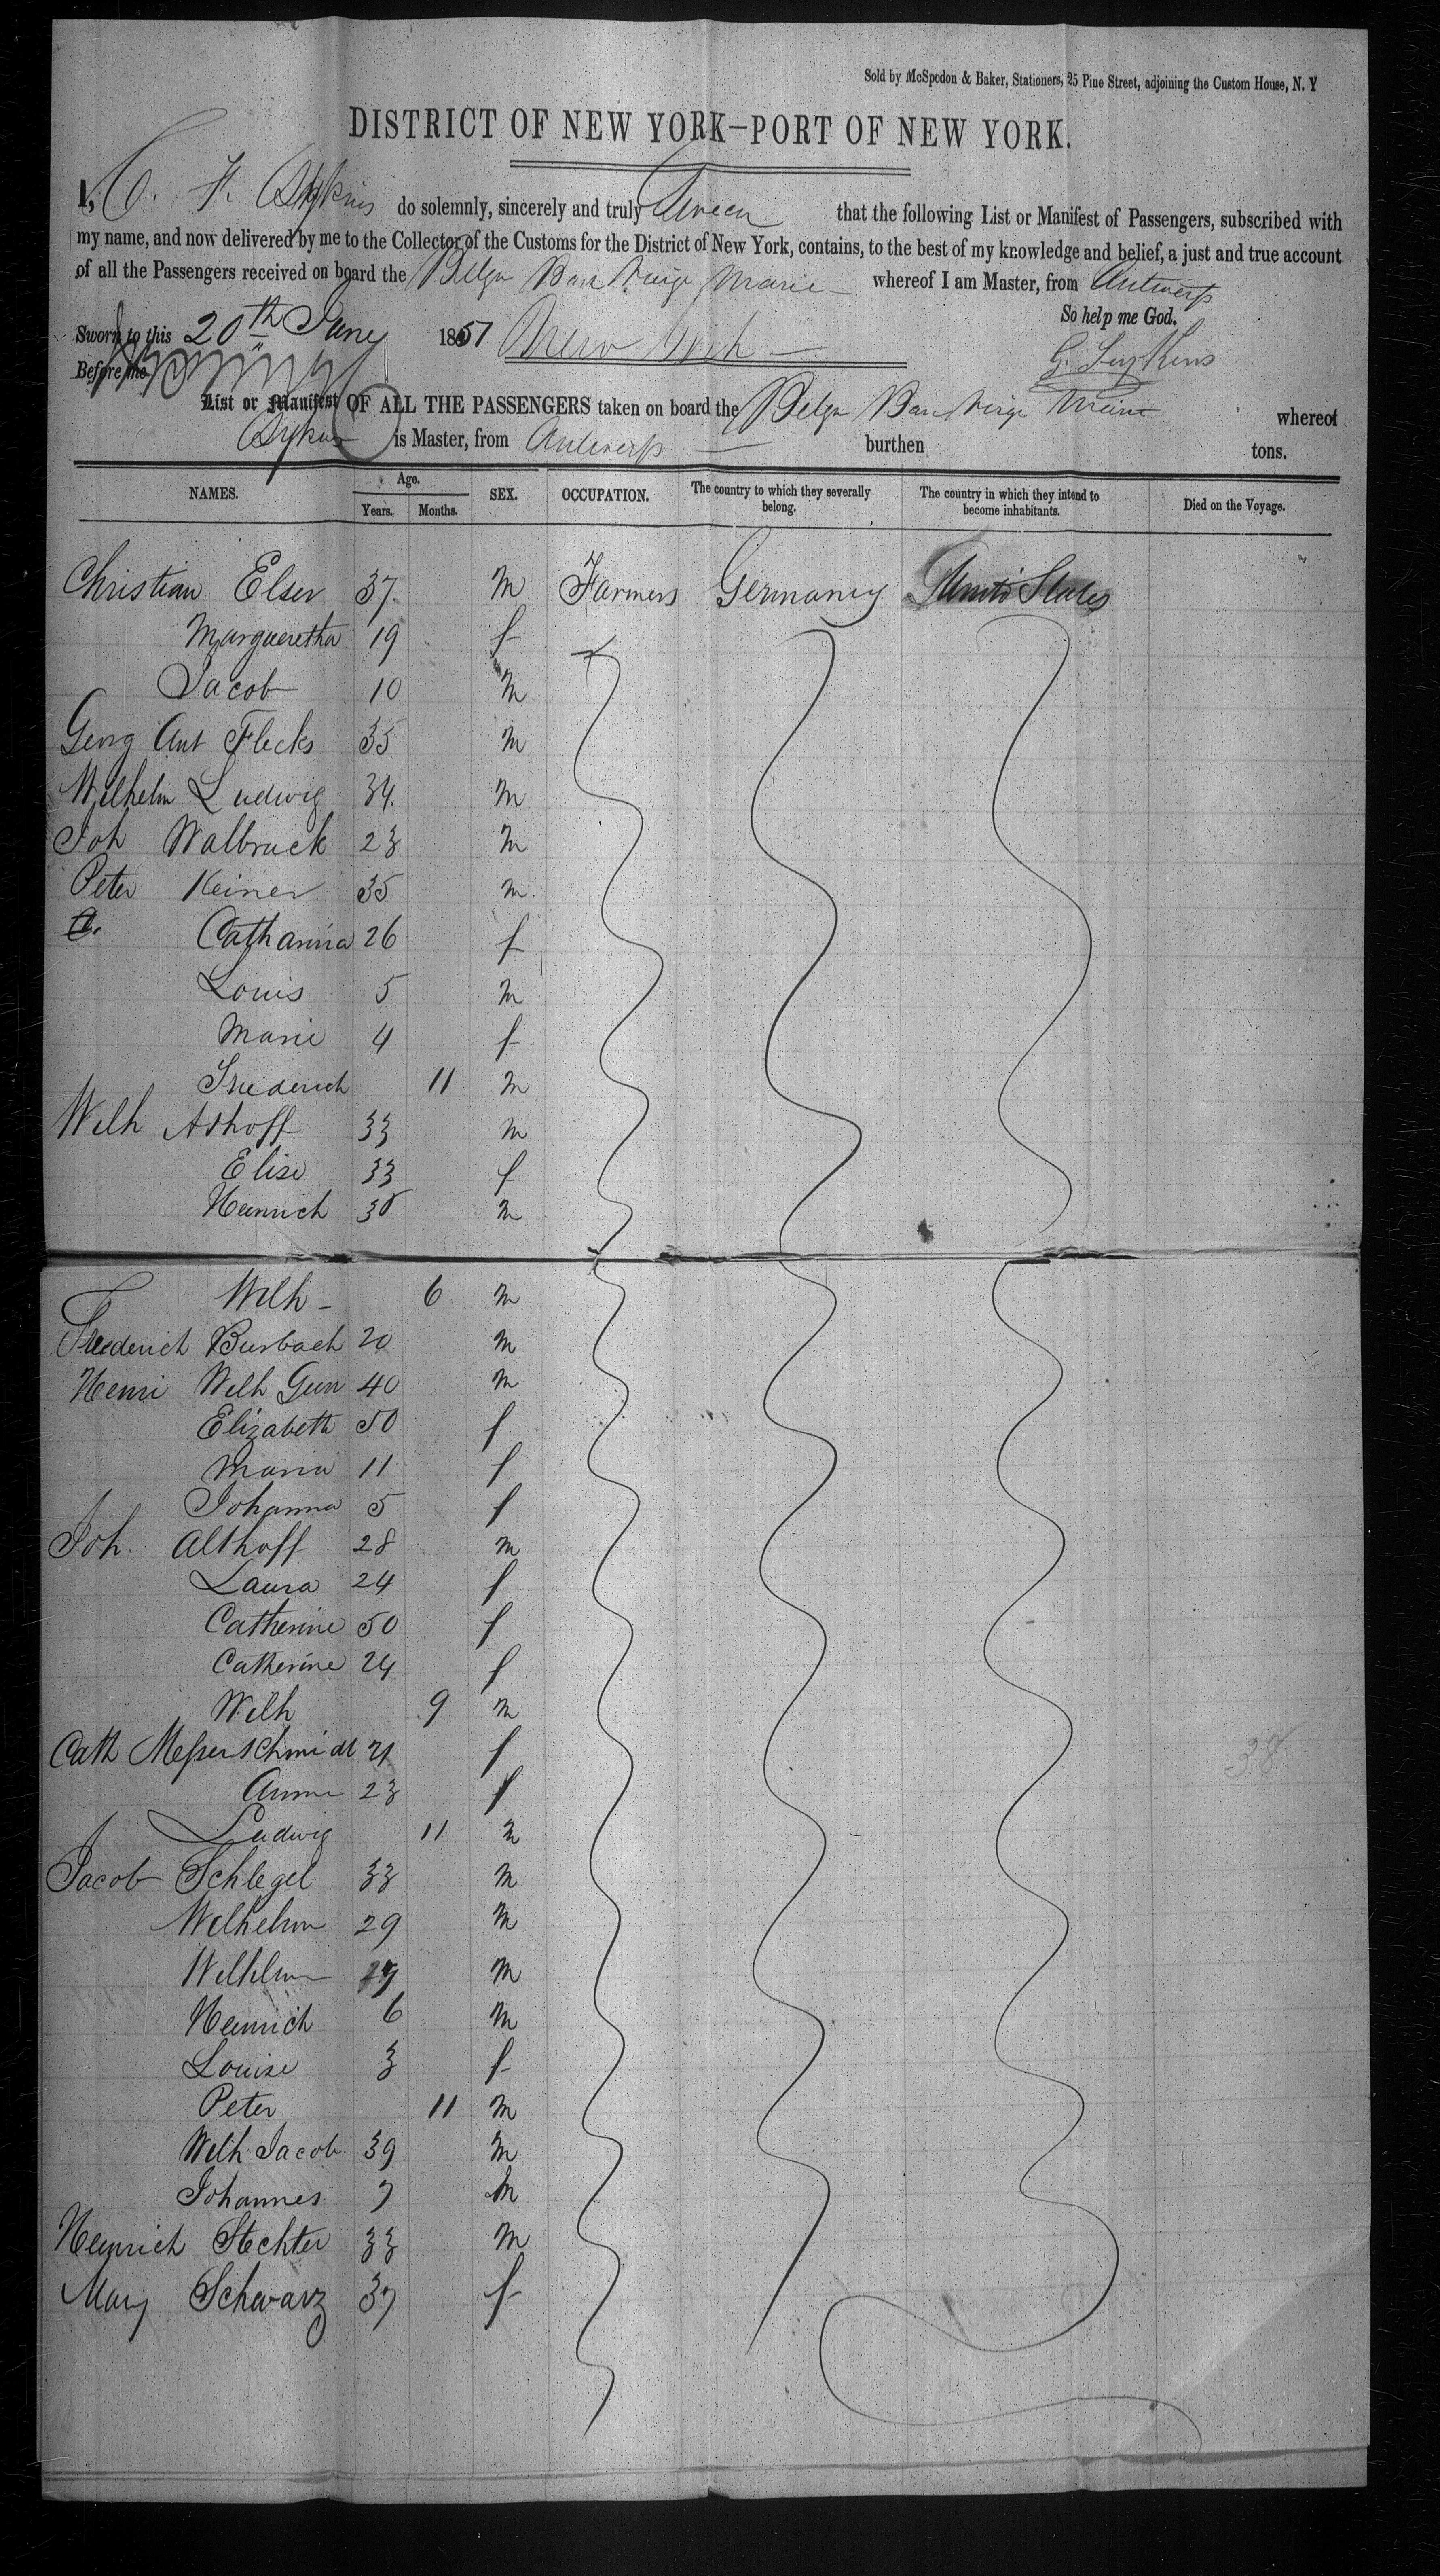 Sold by McSpedon & Baker, Stationers, 25 Pine Street, adjoining the Custom House, N. Y
DISTRICT OF NEW YORK—PORT OF NEW YORK.
I, do solemnly, sincerely and truly Swear that the following List or Manifest of Passengers, subscribed with
my name, and now delivered by me to the Collector of the Customs for the District of New York, contains, to the best of my knowledge and belief, a just and true account
of all the Passengers received on board the Belgn Bark Vierge Marie whereof I am Master, from Antwerp
So help me God.
Sworn to this 20th June 1851 New York
Before me
List or Manifest OF ALL THE PASSENGERS taken on board the Belgn Bark Vierge Marie whereof
is Master, from Antwerp burthen tons.
NAMES. Age. Years. Months. SEX. OCCUPATION. The country to which they severally belong. The country in which they intend to become inhabitants. Died on the Voyage.
Christian Elser 37 m Farmers Germany United States
Margueretha 19 f
Jacob 10 m
Georg Ant Flecks 35 m
Wilhelm Ludwig 34 m
Joh Walbruck 23 m
Peter Keiner 35 m
Catharina 26 f
Louis 5 m
Marie 4 f
Friederich 11 m
Wilh Ashoff 33 m
Elise 33 f
Heinrich 35 m
Wilh 6 m
Friederich Burbach 20 m
Henri Wilh Geun 40 m
Elizabeth 50 f
Maria 11 f
Johanna 5 f
Joh. Althoff 28 m
Laura 24 f
Catherine 50 f
Catherine 24 f
Wilh 9 m
Cath Messerschmidt 21 f
Anna 23 f
Ludwig 11 m
Jacob Schlegel 33 m
Wilhelm 29 m
Wilhelm m
Heinrich 6 m
Louise 3 f
Peter 11 m
Wilh Jacob 39 m
Johannes 7 m
Heinrich Stechter 33 m
Mary Schwarz 37 f
38